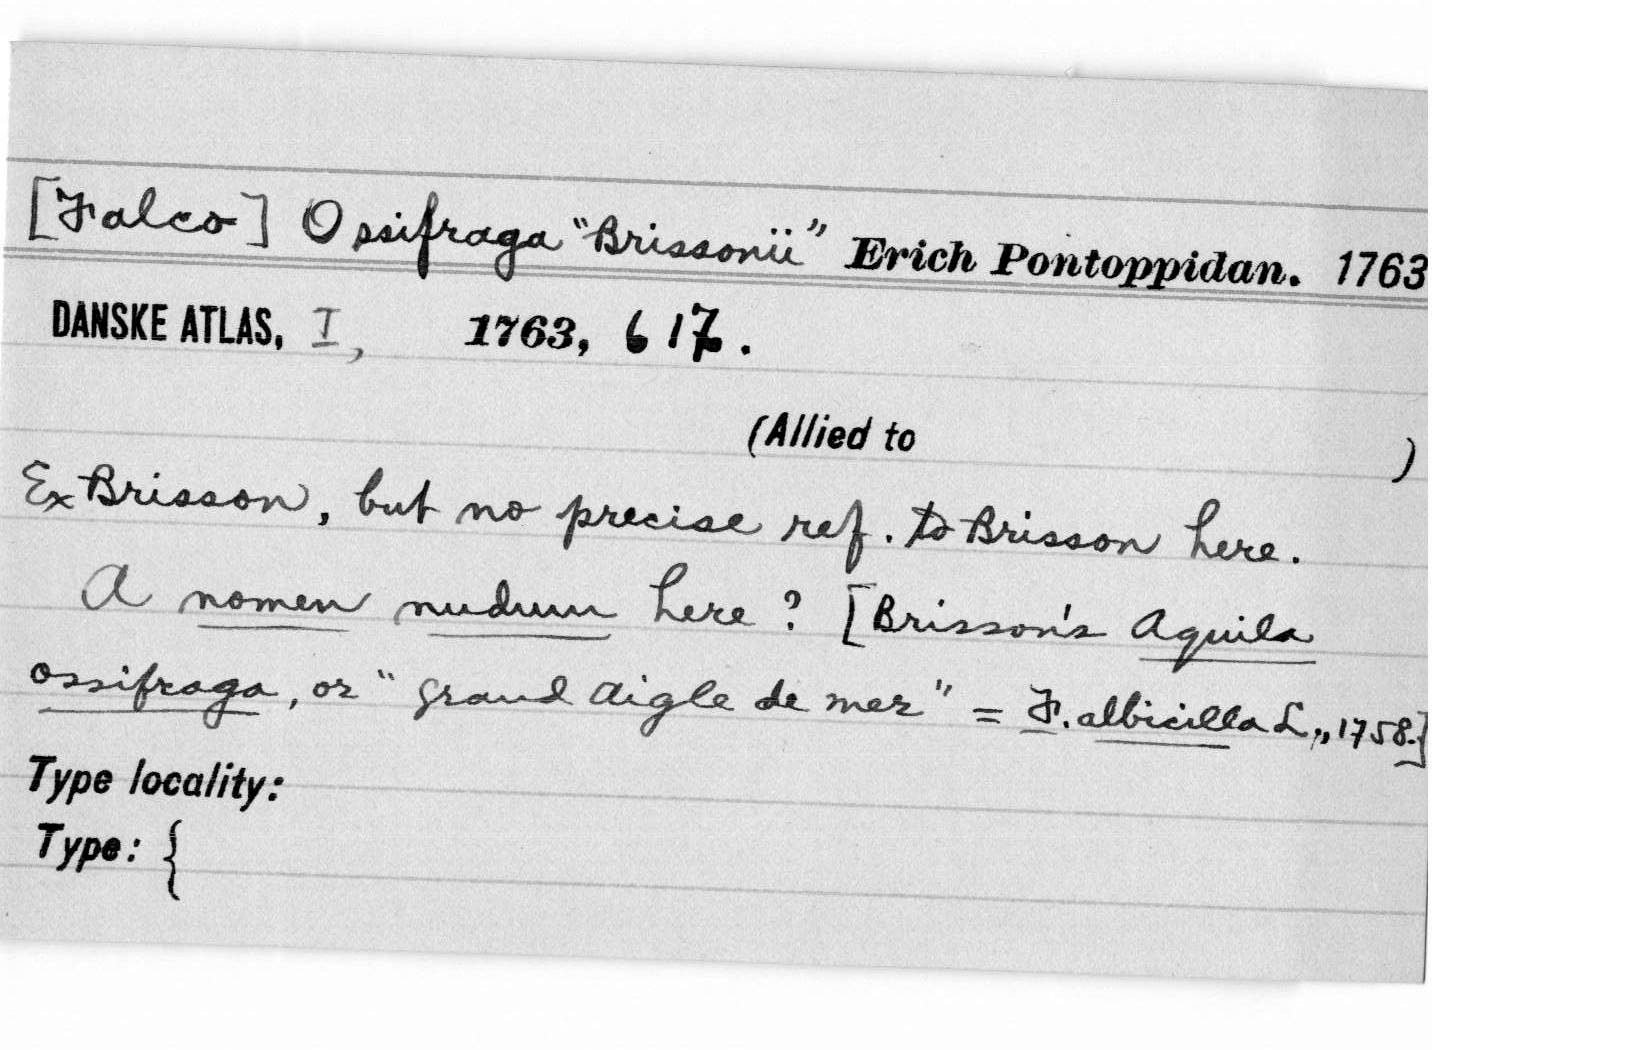 [Falco] Ossifraga "Brissonii" Erich Pontoppidan. 1763
DANSKE ATLAS, I, 1763, 617.
(Allied to )
Ex Brisson, but no precise ref. to Brisson here.
A nomen nudum here? [Brisson's Aquila
ossifraga, or "grand aigle de mer" = F. albicilla L., 1758.]
Type locality:
Type: {